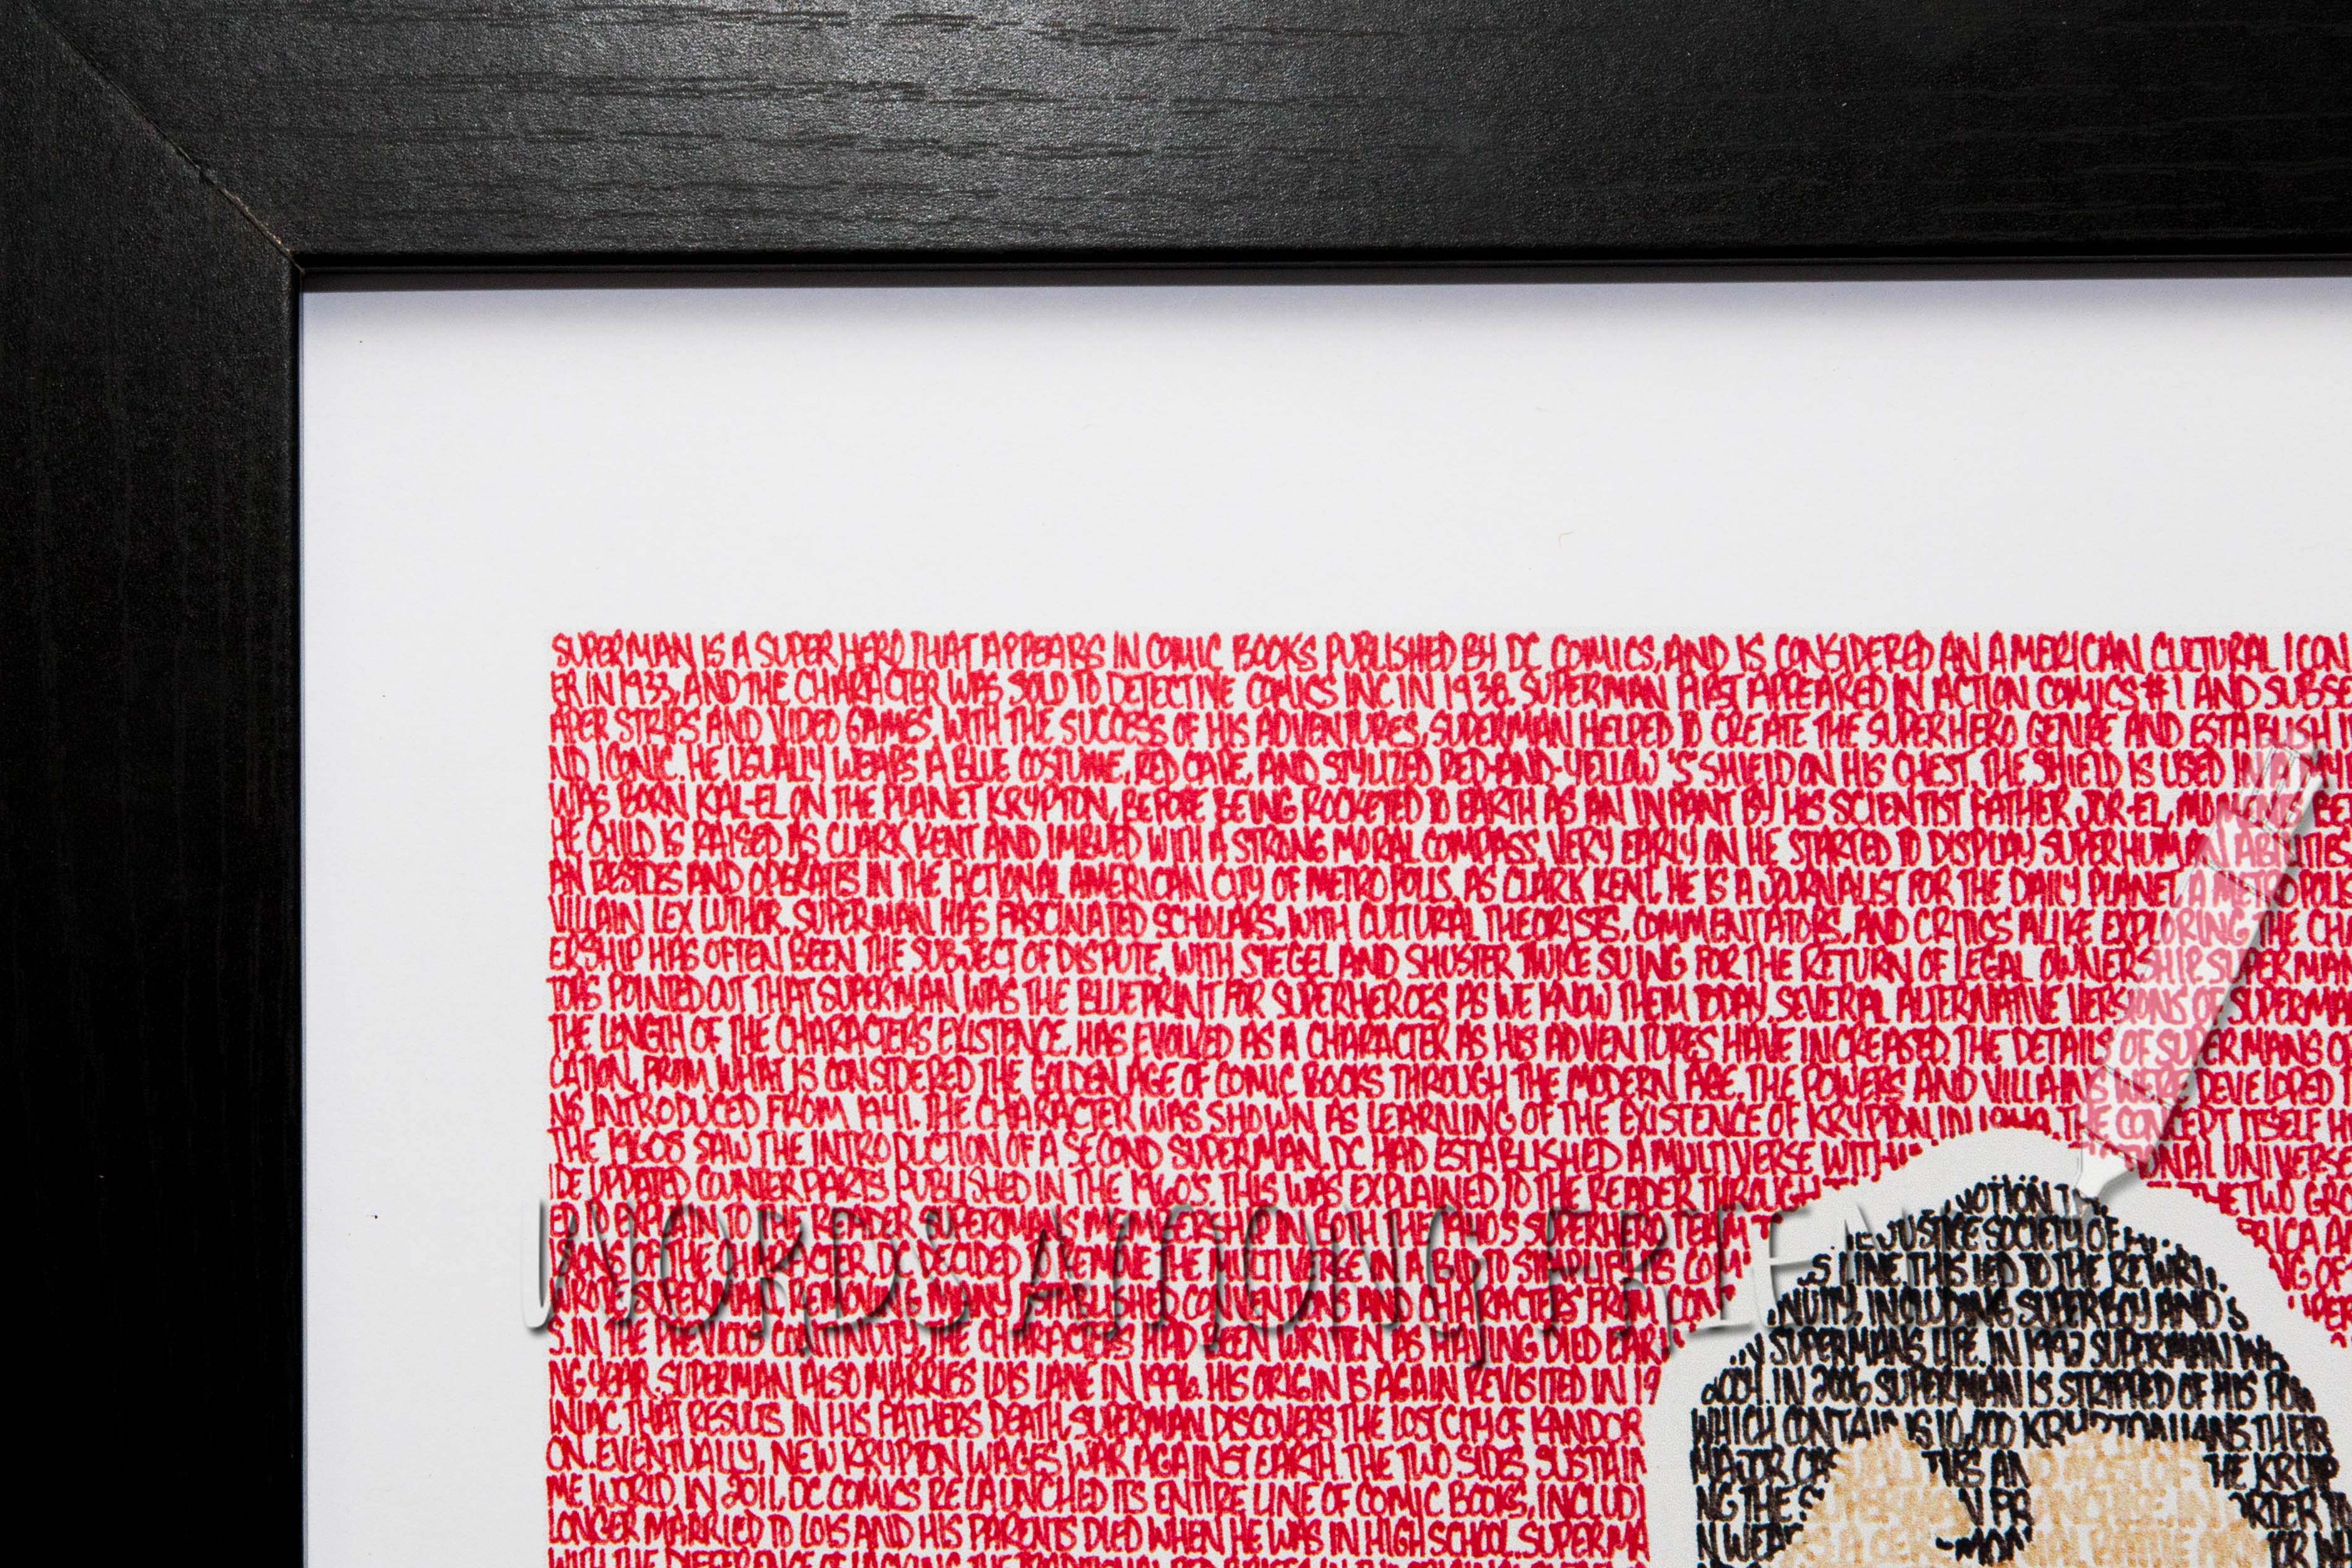 SUPERMAN IS A SUPERHERO THAT APPEARS IN COMIC BOOKS PUBLISHED BY DC COMICS, AND IS CONSIDERED AN AMERICAN CULTURAL ICON
ER IN 1933, AND THE CHARACTER WAS SOLD TO DETECTIVE COMICS INC IN 1938. SUPERMAN FIRST APPEARED IN ACTION COMICS #1 AND SUBSE
APER STRIPS AND VIDEO GAMES. WITH THE SUCCESS OF HIS ADVENTURES, SUPERMAN HELPED TO CREATE THE SUPERHERO GENRE AND ESTABLISH I
ND ICONIC. HE USUALLY WEARS A BLUE COSTUME, RED CAVE, AND STYLIZED RED-AND-YELLOW 'S' SHIELD ON HIS CHEST. THE SHIELD IS USED IN
WAS BORN KAL-EL ON THE PLANET KRYPTON, BEFORE BEING ROCKETED TO EARTH AS AN INFANT BY HIS SCIENTIST FATHER JOR-EL, MOMENTS BE
HE CHILD IS RAISED AS CLARK KENT AND IMBUED WITH A STRONG MORAL COMPASS. VERY EARLY ON HE STARTED TO DISPLAY SUPERHUMAN ABILITIES
AN RESIDES AND OPERATES IN THE FICTIONAL AMERICAN CITY OF METROPOLIS. AS CLARK KENT, HE IS A JOURNALIST FOR THE DAILY PLANET, A METROPOLIS
VILLAIN LEX LUTHOR. SUPERMAN HAS FASCINATED SCHOLARS, WITH CULTURAL THEORISTS, COMMENTATORS, AND CRITICS ALIKE EXPLORING THE CHA
ERSHIP HAS OFTEN BEEN THE SUBJECT OF DISPUTE, WITH SIEGEL AND SHUSTER TWICE SUING FOR THE RETURN OF LEGAL OWNERSHIP. SUPERMAN
TORS POINTED OUT THAT SUPERMAN WAS THE BLUEPRINT FOR SUPERHEROES AS WE KNOW THEM TODAY. SEVERAL ALTERNATIVE VERSIONS OF SUPERMAN
THE LENGTH OF THE CHARACTERS EXISTENCE, HAS EVOLVED AS A CHARACTER AS HIS ADVENTURES HAVE INCREASED. THE DETAILS OF SUPERMANS O
CATION, FROM WHAT IS CONSIDERED THE GOLDEN AGE OF COMIC BOOKS THROUGH THE MODERN AGE. THE POWERS AND VILLAINS WERE DEVELOPED T
NS INTRODUCED FROM 1941. THE CHARACTER WAS SHOWN AS LEARNING OF THE EXISTENCE OF KRYPTON IN 1949. THE CONCEPT ITSELF H
THE 1960S SAW THE INTRODUCTION OF A SECOND SUPERMAN. DC HAD ESTABLISHED A MULTIVERSE WITHIN UNIVERSE
IDE UPDATED COUNTERPARTS PUBLISHED IN THE 1960'S. THIS WAS EXPLAINED TO THE READER THROUGH NOTION THE TWO GR
ED TO EXPLAIN TO THE READER SUPERMANS MEMBERSHIP IN BOTH THE 1940'S SUPERHERO TEAM JUSTICE SOCIETY OF
IONS OF THE CHARACTER, DC DECIDED TO REMOVE THE MULTIVERSE IN A BID TO SIMPLIFY ITS COM LINE. THIS LED TO THE REWRI
WROTE SUPERMAN, REMOVING MANY ESTABLISHED CONVENTIONS AND CHARACTERS FROM CON NUITY, INCLUDING SUPERBOY AND S
WORDS AMONG FRIEN
S. IN THE PREVIOUS CONTINUITY, THE CHARACTERS HAD BEEN WRITTEN AS HAVING DIED EARL SUPERMANS LIFE. IN 1992 SUPERMAN
NG YEAR. SUPERMAN ALSO MARRIES LOIS LANE IN 1996. HIS ORIGIN IS AGAIN REVISITED IN 19 2004. IN 2006 SUPERMAN IS STRIPPED OF HIS POW
INIAC THAT RESULTS IN HIS FATHERS DEATH, SUPERMAN DISCOVERS THE LOST CITY OF KANDOR WHICH CONTAINS 10,000 KRYPTONIANS. THEIR
ON. EVENTUALLY, NEW KRYPTON WAGES WAR AGAINST EARTH. THE TWO SIDES SUSTAIN MAJOR THE KRYP
ME WORLD. IN 2011, DC COMICS RELAUNCHED ITS ENTIRE LINE OF COMIC BOOKS, INCLUDI NG THE
LONGER MARRIED TO LOIS AND HIS PARENTS DIED WHEN HE WAS IN HIGH SCHOOL. SUPERMA
WITH THE DIFFERENCE OF LACKING THE TRADITIONAL RED